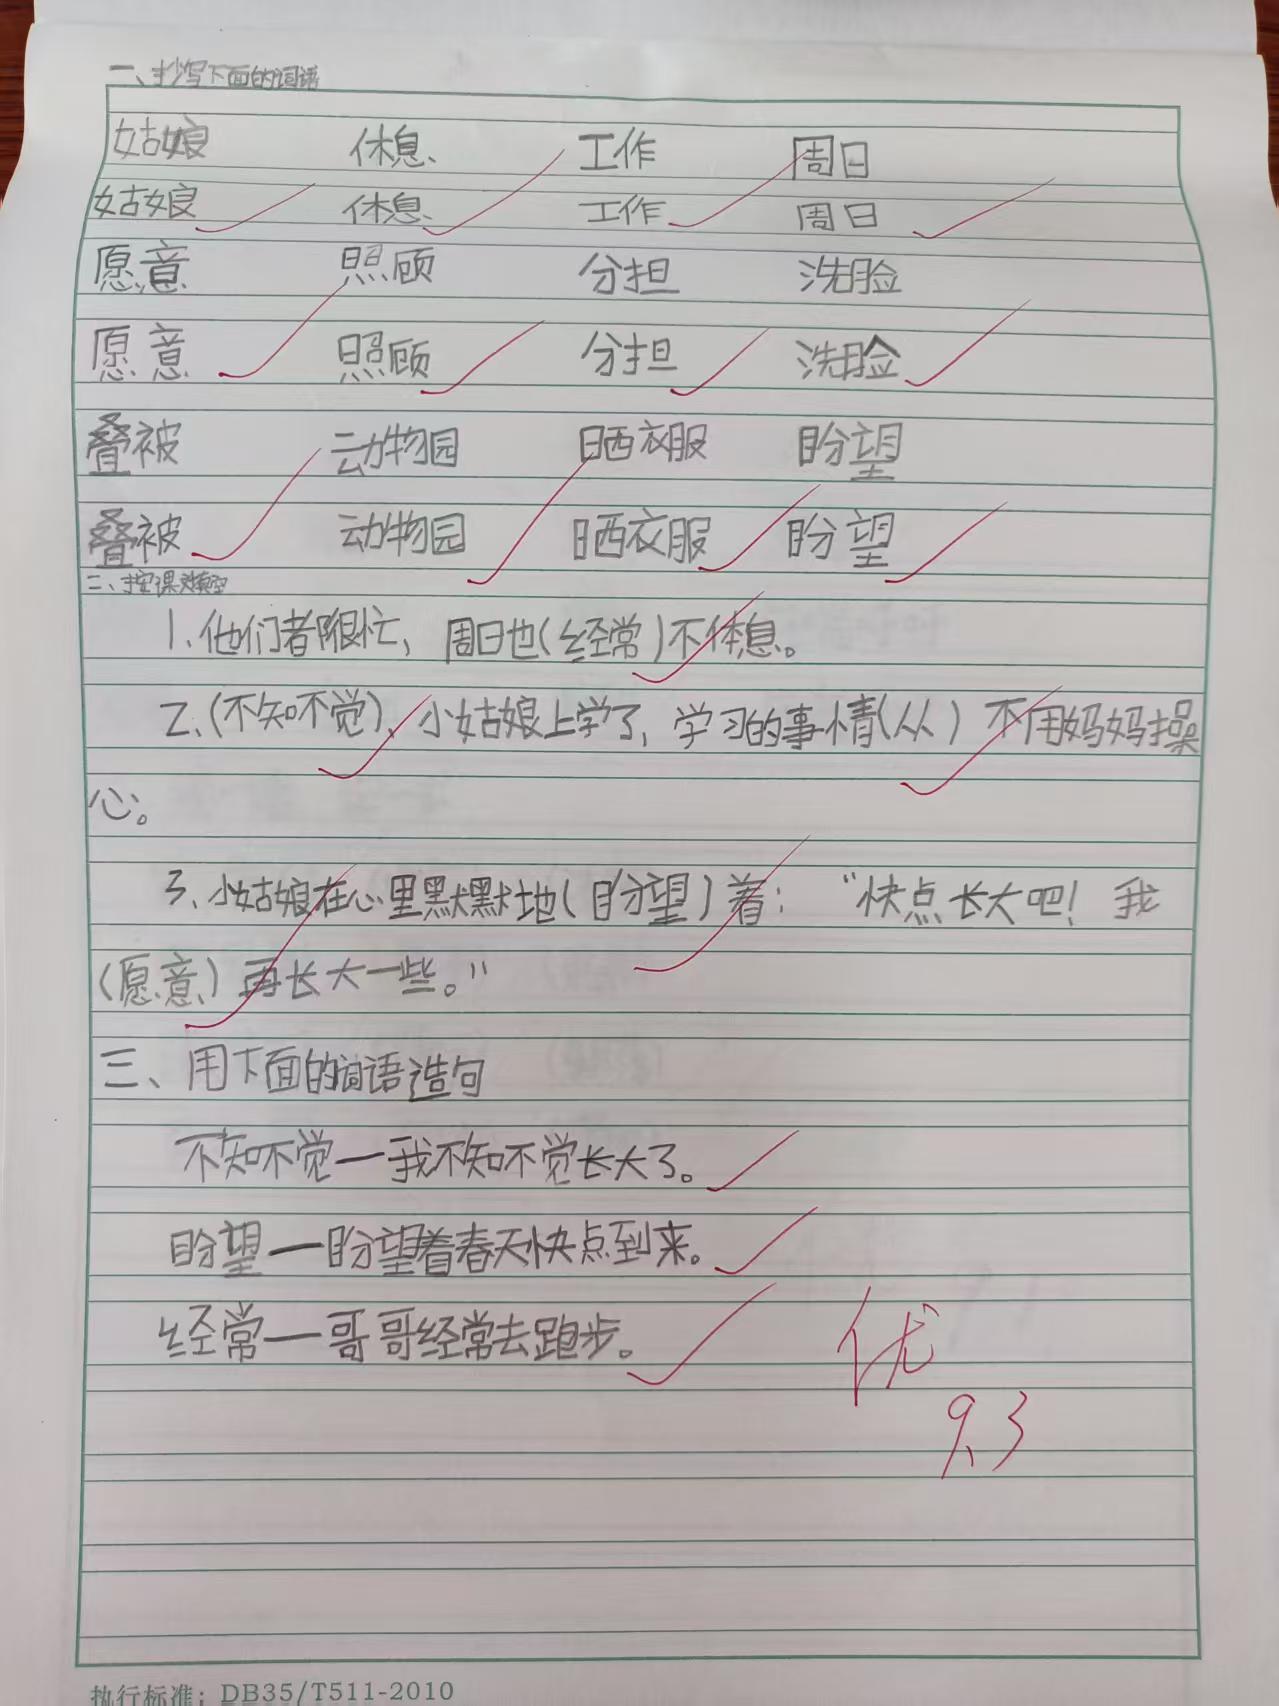 一、抄写下面的词语
姑娘 休息 工作 周日
姑娘 休息 工作 周日
愿意 照顾 分担 洗脸
愿意 照顾 分担 洗脸
叠被 动物园 晒衣服 盼望
叠被 动物园 晒衣服 盼望
二、按课文填空
1.他们都很忙，周日也(经常)不休息。
2.(不知不觉)，小姑娘上学了，学习的事情(从)不用妈妈操
心。
3.小姑娘在心里默默地(盼望)着：“快点长大吧！我
(愿意)再长大一些。”
三、用下面的词语造句
不知不觉—我不知不觉长大了。
盼望—盼望着春天快点到来。
经常—哥哥经常去跑步。
优
9.3
执行标准：DB35/T511-2010